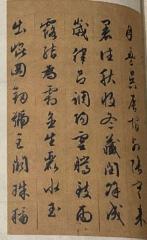 月盈昃辰宿列張寒來
暑往秋收冬藏閏餘成
歲律呂調陽雲騰致雨
露結為霜金生麗水玉
出崑岡劍號巨闕珠稱